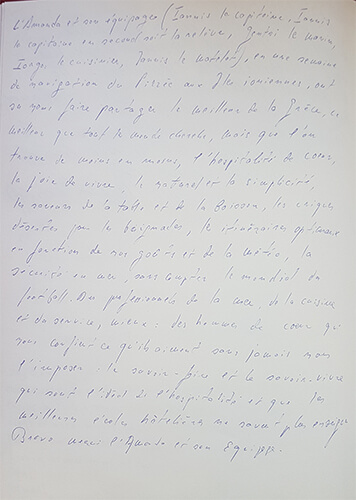 L'Amanda et son équipage (Iannis le capitaine, Iannis
le capitaine en second soit la relève, le marin,
Iorgo le cuisinier, Iannis le matelot), en une semaine
de navigation du Pirée aux Iles ioniennes, ont
su nous faire partager le meilleur de la Grèce, ce
meilleur que tout le monde cherche, mais que l'on
trouve de moins en moins, l'hospitalité du coeur,
la joie de vivre, le naturel et la simplicité,
les saveurs de la table et de la boisson, les criques
désertes pour les baignades, les itinéraires optimaux
en fonction de nos goûts et de la météo, la
sécurité en mer, sans compter le mondial du
football. Des professionnels de la mer, de la cuisine
et du service, mieux : des hommes de coeur qui
nous sans jamais nous
l'imposer le savoir-faire et le savoir-vivre
qui sont l'idéal de l'hospitalité et que les
meilleures écoles hôtelières ne savent plus enseigner
Bravo merci l'Amanda et son équipage.